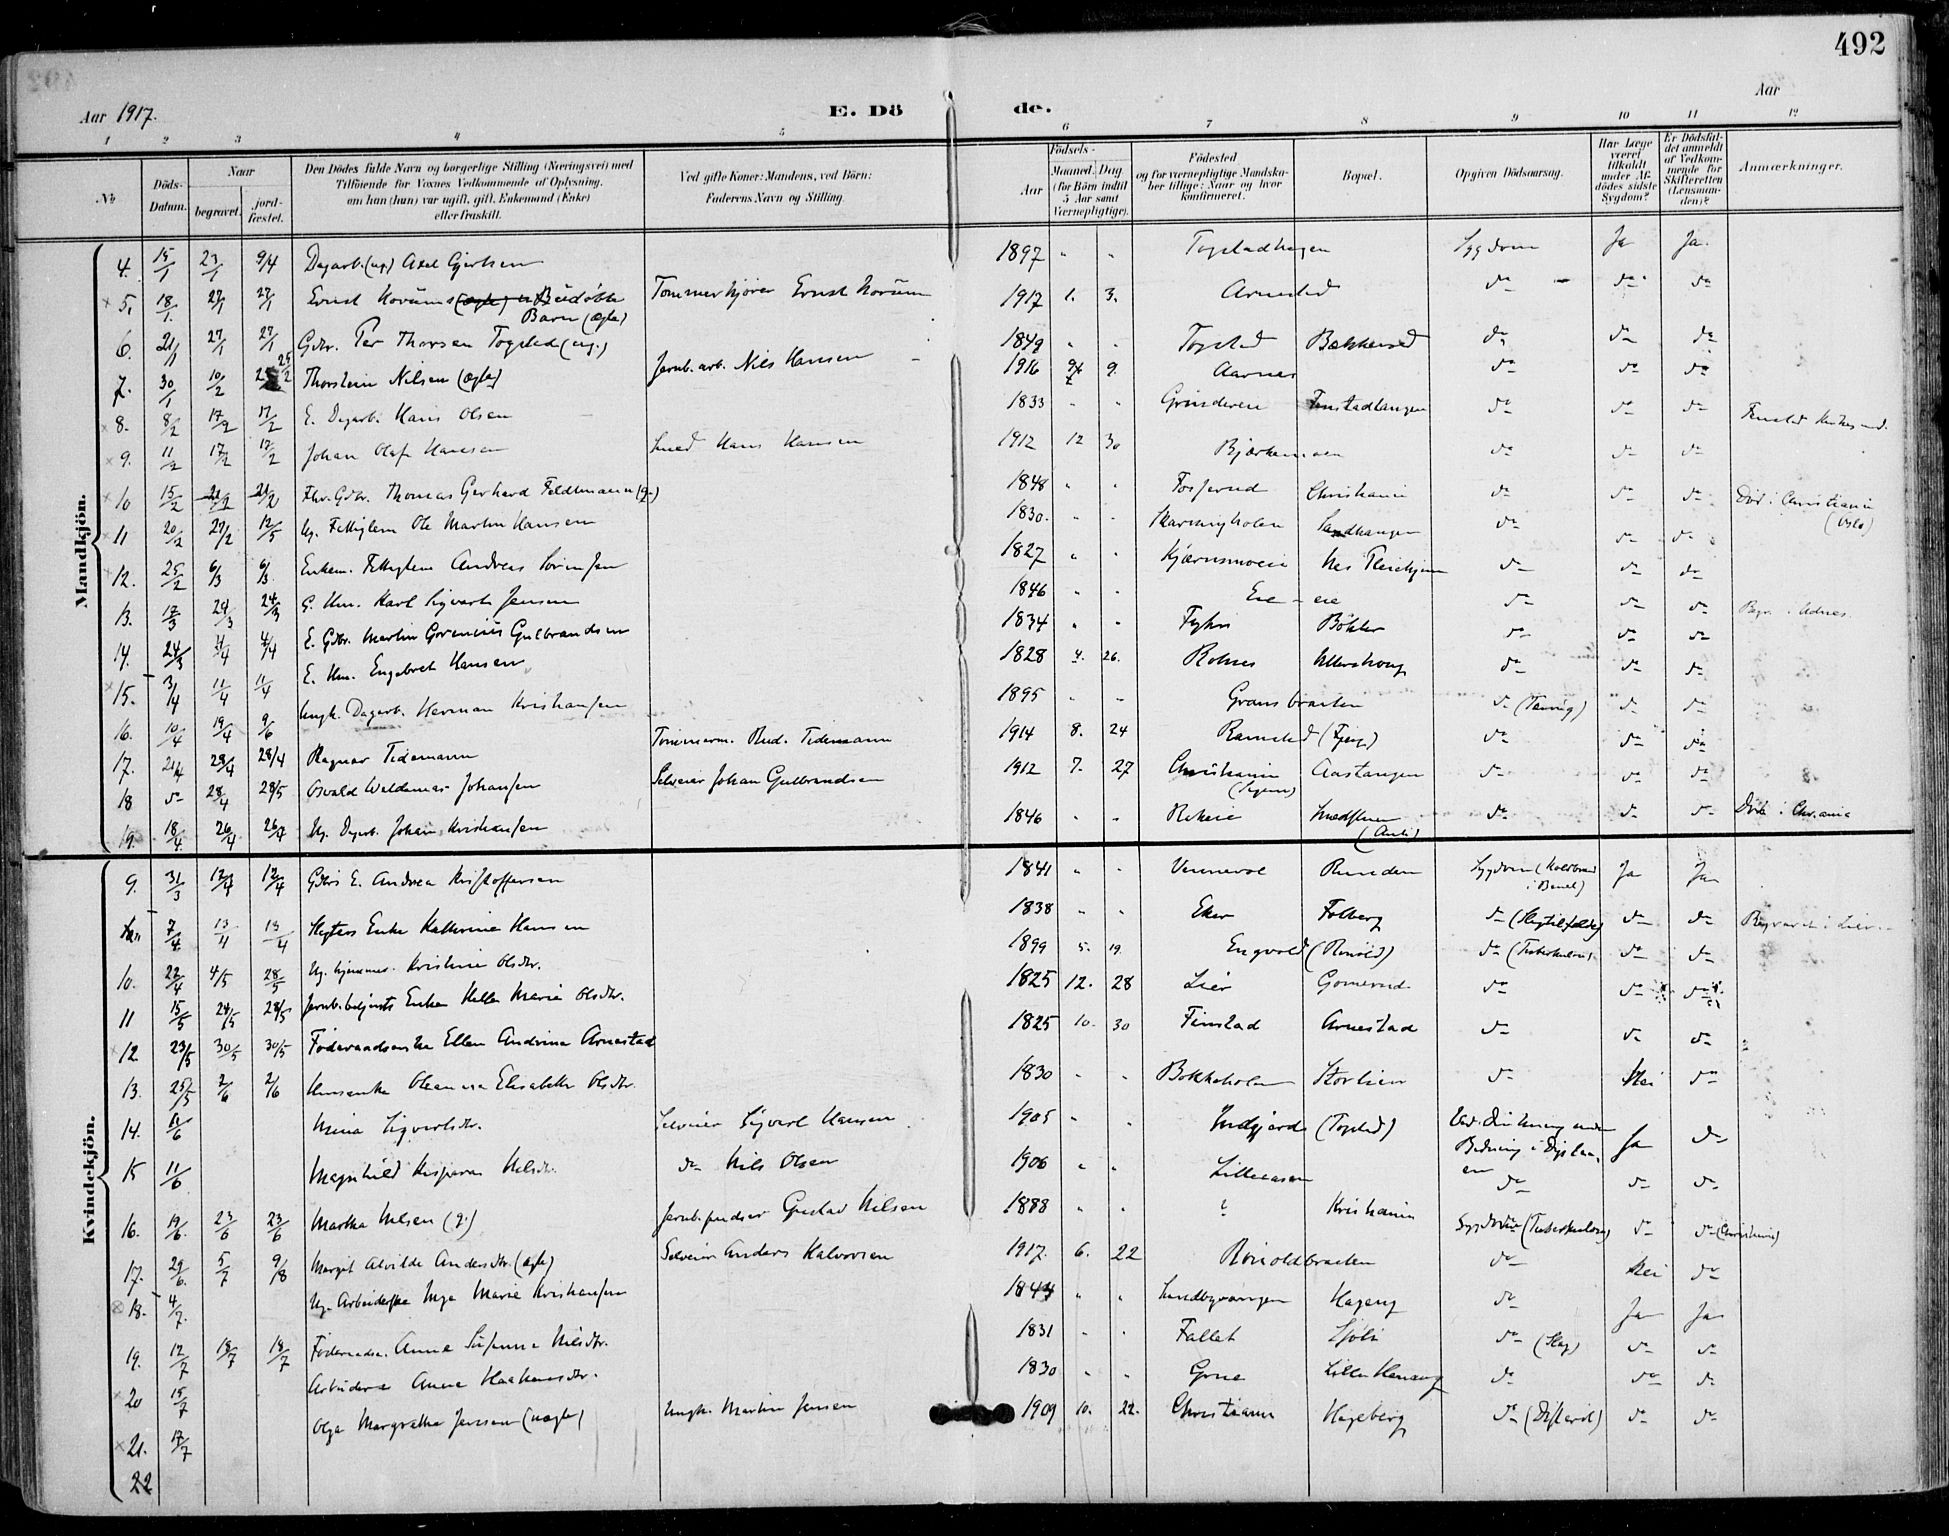 492
Aar 1917.
E. Dö
de.
Aar
1 2 3 4 5 6 7 8 9 10 11 12
No
Döds-
Datum.
Naar
begravet.
jord-
fæstet.
Den Dödes fulde Navn og borgerlige Stilling (Næringsvei) med
Tilföiende for Voxnes Vedkommende af Oplysning,
om han (hun) var ugift, gift, Enkemand (Enke)
eller fraskilt.
Ved gifte Koner: Mandens, ved Börn:
Faderens Navn og Stilling.
Födsels-
Aar
Maaned. Dag
(for Börn indtil
5 Aar samt
Værnepligtige).
Födested
og for værnepligtige Mandska-
ber tillige: Naar og hvor
konfirmeret.
Bopæl.
Opgiven Dödsaarsag.
Har Læge
været
tilkaldt
under Af-
dödes sidste
Sygdom?
Er Dödsfal-
det anmeldt
af Vedkom-
mende for
Skifteretten
(Lensman-
den)?
Anmærkninger.
Mandkjön.
4. 15/1 23/1 9/4 Dagarb. (ug.) Axel Gjertsen 1897 " " Togstadhagen Sygdom Ja Ja.
5. 18/1 27/1 27/1 Ernst Korums udöbte Tömmerkjörer Ernst Korum 1917 1. 3. Arnestad do do do
Barn (ægte)
6. 21/1 27/1 27/1 Gdbr. Per Thorsen Togstad (ug.) 1849 " " Togstad Bækkerud do do do
7. 30/1 10/2 25/2 Thorstein Nilsen (ægte) Jernb. arb. Nils Hansen 1916 9. Aarnes do do do
8. 8/2 17/2 17/2 E. Dagarb. Hans Olsen 1833 " " Grinderen Finstadtangen do do do
9. 11/2 17/2 17/2 Johan Olaf Hansen Smed Hans Hansen 1912 12 30 Bjerkemoen do do do
10 15/2 21/2 21/2 Fhv. Gdbr. Thomas Gerhard Feldtmann (g.) 1848 " " Fosserud Christiania do do do Död i Christiania
(Oslo)
11 20/2 27/2 12/5 Ug. Fattiglem Ole Martin Hansen 1830. " " Skarningholen Sandtangen do do do
12. 25/2 6/3 6/3 Enkem. Fattiglem Andreas Sörensen 1827 " " Kjærnsmoen Nes Pleiehjem do do do
13. 17/3 24/3 24/3 G. Hm. Karl Sigvart Jensen 1846 " " do do do Begr. i Udnes.
14. 24/3 4/4 4/4 E. Gdbr. Martin Gorenius Gulbrandsen 1834 " " Böhler do do do
15. 3/4 11/4 11/4 E. Hm. Engebret Hansen 1828 4. 26. Rolnes Ullershoug do do do
16. 10/4 19/4 9/6 Ungk. Dagarb. Herman Kristiansen 1895 " " Gransbraaten do (Tæring) do do
17. 21/4 28/4 28/4 Ragnar Tidemann Tömmerm. Rud. Tidemann 1914 8. 24 Ramstad do do do
18 do 28/4 28/5 Osvald Waldemar Johansen Selveier Johan Gulbrandsen 1912 7. 27 Christiania Aastangen do do do
19. 18/4 26/4 26/7 Ug. Dagarb. Johan Kristiansen 1846 " " do do do Död i Chr.ania
Kvindekjön.
9. 31/3 12/4 12/4 Gdbrs E. Andrea Kristoffersen 1841 " " Venevol Runden Sygdom (Koldbrand
i Benet) Ja Ja
7/4 13/4 13/4 Slagters Enke Kathrine Hansen 1838 " " Eker Folberg do (Slagtilfælde) do do Begravet i Lier.
10. 22/4 4/5 28/5 Ug. hjemmev. Kristine Olsdtr. 1899 5. 19. Engvold (Rönold) do (Tuberkulose) do do
11 15/5 24/5 28/5 Jernb.betjents Enke Helle Marie Olsdtr. 1825 12. 28 Lier Gomerud do do do
12. 23/5 30/5 30/5 Föderaadsenke Ellen Andrine Arnestad 1825 10. 30 Finstad Arnestad do do do
13. 25/5 2/6 2/6 Husenke Oleanna Elisabeth Olsdtr. 1830 " " Bokkeholen Storlien do Nei do
14. 11/6 Mina Sigvartsdtr. Selveier Sigvart Hansen 1905 " " Indgjerde (Togstad) Ved Drukning under
Badning i Ja do
15 11/6 Magnhild Nilsdtr. do Nils Olsen 1906 " " Lilleaasen do do do
16. 19/6. 23/6 23/6 Martha Nilsen (g.) Jernb.pudser Gustav Nilsen 1888 " " ? Kristiania Sygdom (Tuberkulose) do do (Christiania)
17. 29/6. 5/7 9/8 Margit Alvilde Andersdtr. (ægte) Selveier Anders Halvorsen 1917. 6. 22 Rönoldbraaten do Nei do
18. 4/7. Ug. Arbeiderske Inga Marie Kristiansen 1844 " " Sundbyvangen Hageng do Ja Ja
19. 12/7 18/7 18/7 Föderaadse. Anne Susanne Nilsdtr. 1831 " " Fallet Sjöli do (Slag) do do
20 15/7 Arbeiderer Anne Haakensdtr. 1830 " " Grue Lille Henaug do do do
21. 17/7 Olga Margrethe Jensen (uægte) Ungk. Martin Jensen 1909 10. 22. Christiania Hageberg do (Difterit) do do
22